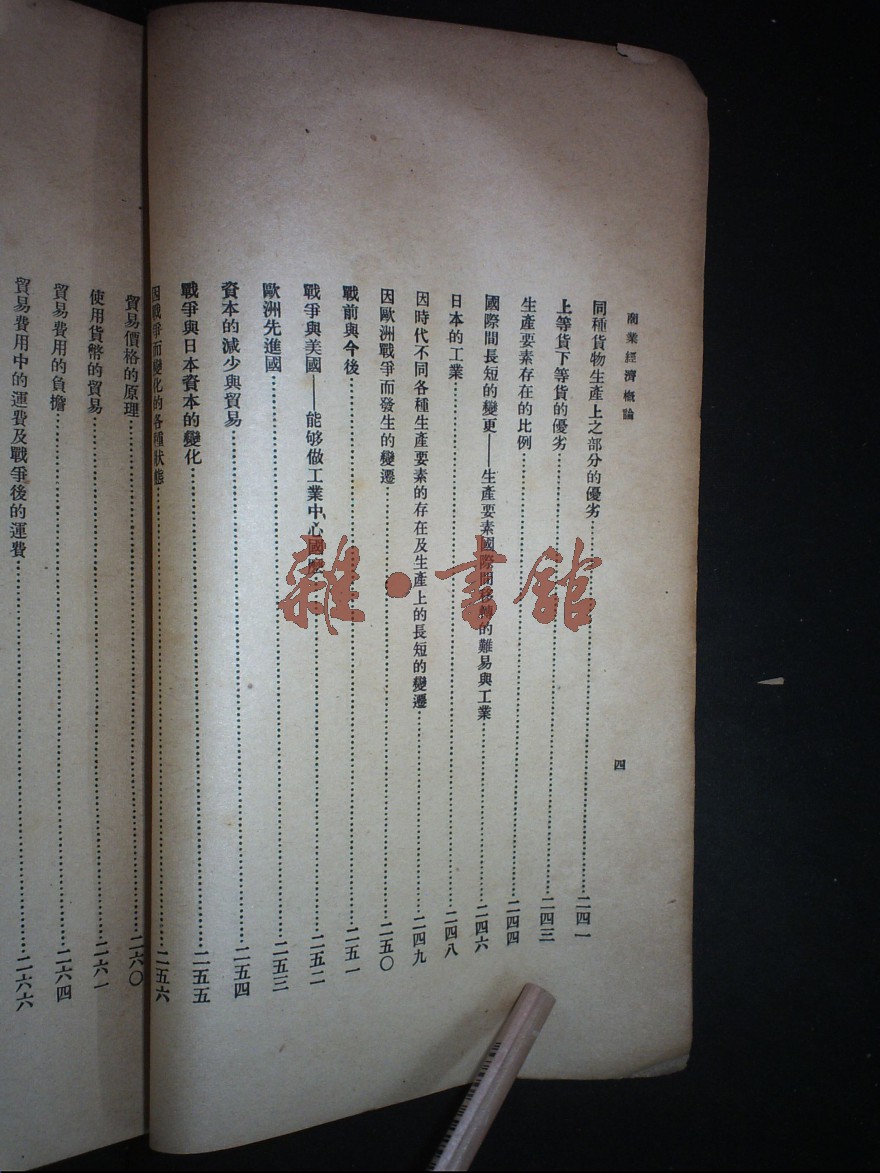 商業經濟概論
四
同種貨物生產上之部分的優劣……二四一
上等貨下等貨的優劣……二四三
生產要素存在的比例……二四四
國際間長短的變更——生產要素國際間移轉的難易與工業……二四六
日本的工業……二四八
因時代不同各種生產要素的存在及生產上的長短的變遷……二四九
因歐洲戰爭而發生的變遷……二五〇
戰前與今後……二五一
戰爭與美國——能够做工業中心國……二五二
歐洲先進國……二五三
資本的減少與貿易……二五四
戰爭與日本資本的變化……二五五
因戰爭而變化的各種狀態……二五六
貿易價格的原理……二六〇
使用貨幣的貿易……二六一
貿易費用的負擔……二六四
貿易費用中的運費及戰爭後的運費……二六六
雜·書館